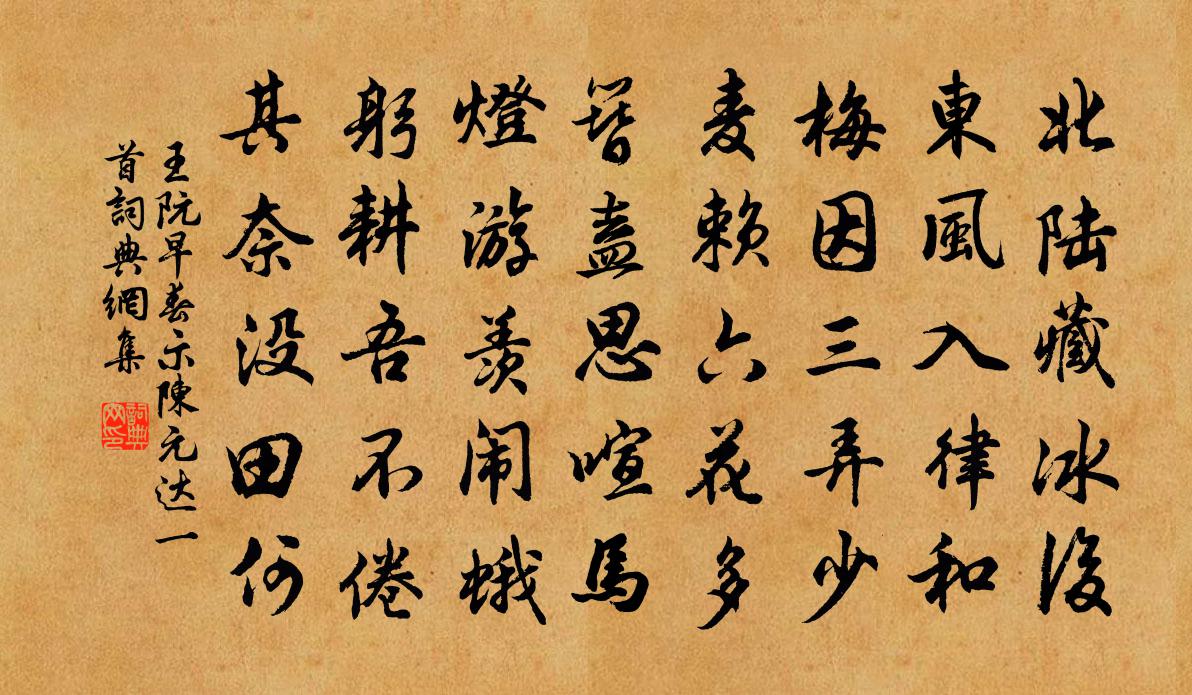 北陆藏冰後
東風入律和
梅因三弄少
麦赖六花多
簪盍思喧馬
燈游羨闹蛾
躬耕吾不倦
其奈没田何
王阮早春示陳元达一
首詞典網集
詞典
网印